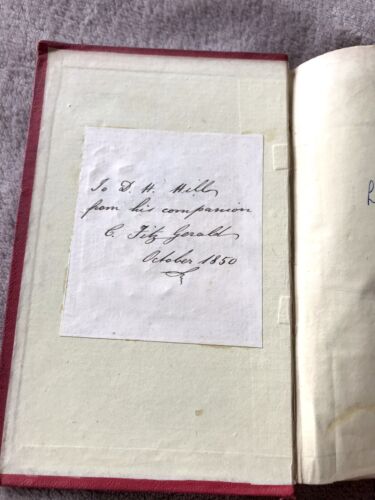 To D. H. Hill
from his companion
C. Fitz Gerald
October 1850